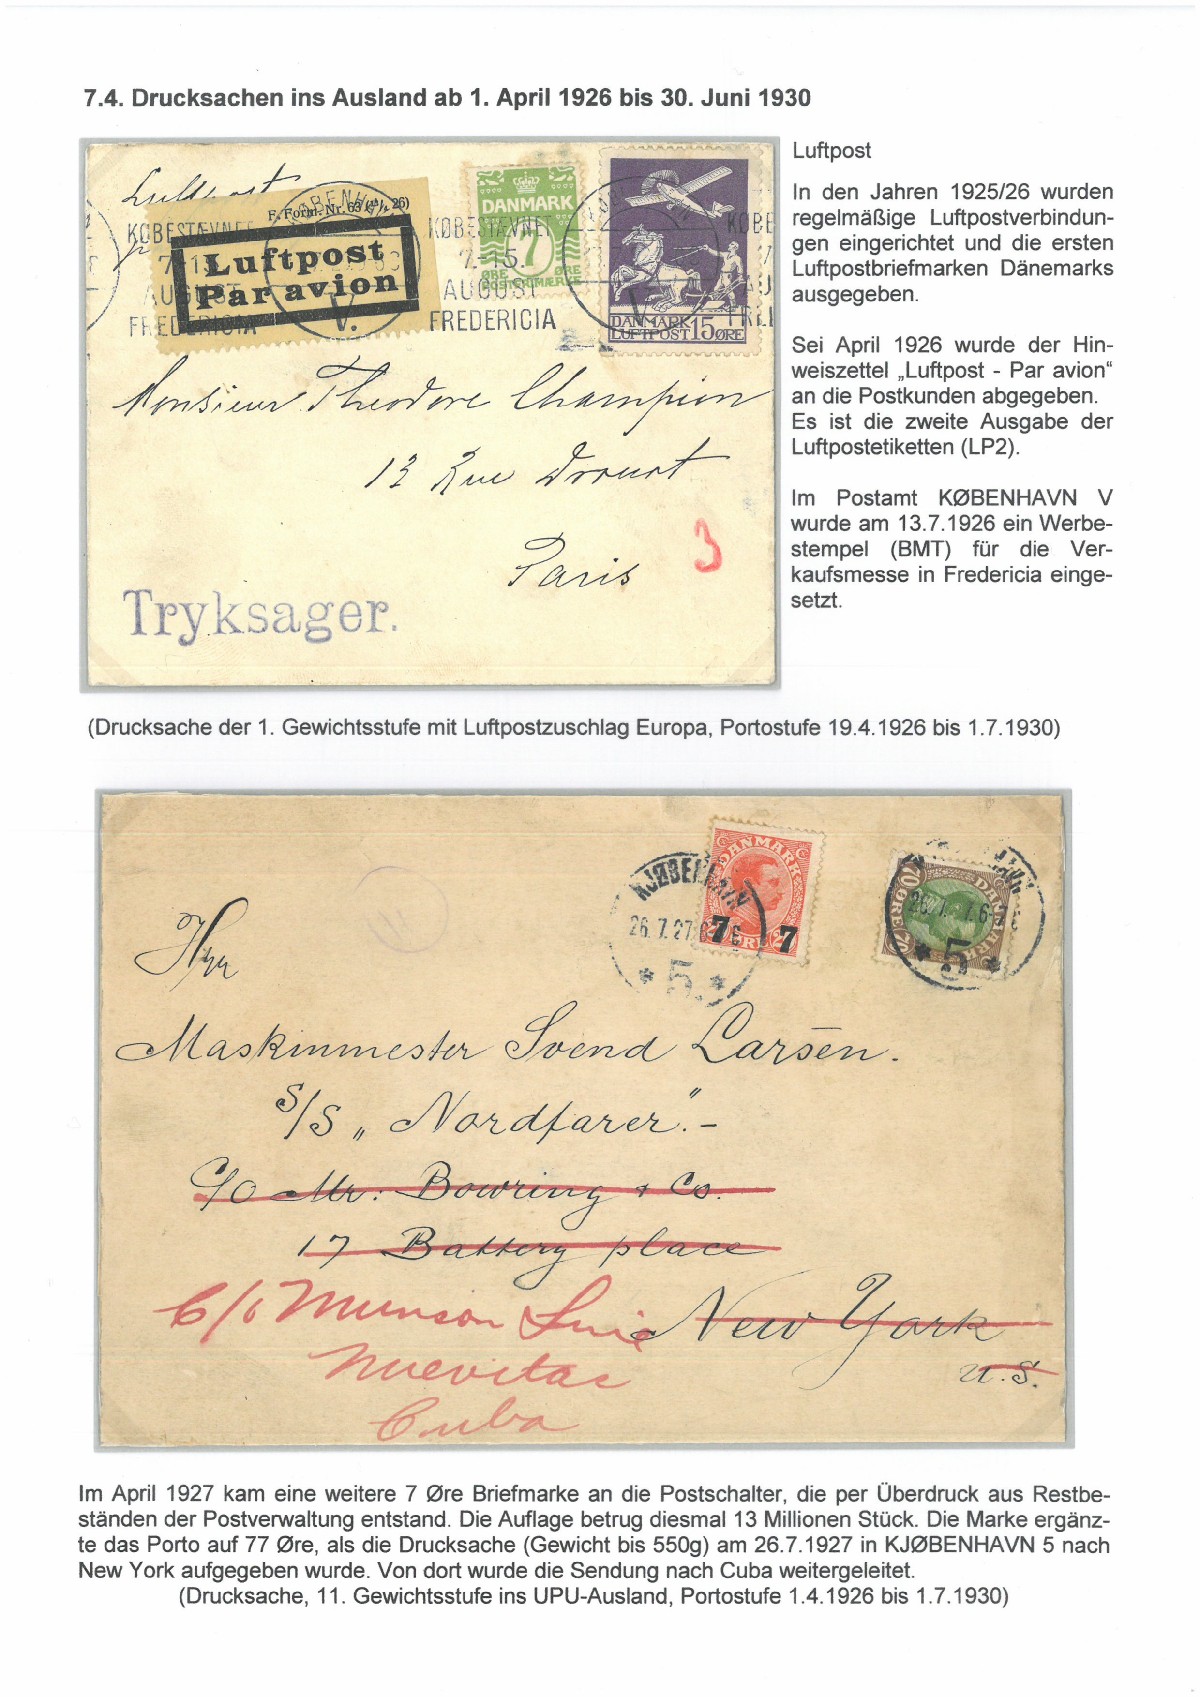 7.4. Drucksachen ins Ausland ab 1. April 1926 bis 30. Juni 1930
Luftpost
F. Form. Nr. 63
Luftpost
Par avion
KØBENHAVN
V.
KØBESTÆVNET
AUGUST
FREDERICIA
KØBESTÆVNET
7.-15.
AUGUST
FREDERICIA
DANMARK
7
ØRE ØRE
POSTFRIMÆRKE
DANMARK
LUFTPOST 15 ØRE
Monsieur Theodore Champion
13 Rue Drouot
Paris
3
Tryksager.
Luftpost
In den Jahren 1925/26 wurden
regelmäßige Luftpostverbindun-
gen eingerichtet und die ersten
Luftpostbriefmarken Dänemarks
ausgegeben.
Sei April 1926 wurde der Hin-
weiszettel „Luftpost - Par avion“
an die Postkunden abgegeben.
Es ist die zweite Ausgabe der
Luftpostetiketten (LP2).
Im Postamt KØBENHAVN V
wurde am 13.7.1926 ein Werbe-
stempel (BMT) für die Ver-
kaufsmesse in Fredericia einge-
setzt.
(Drucksache der 1. Gewichtsstufe mit Luftpostzuschlag Europa, Portostufe 19.4.1926 bis 1.7.1930)
KJØBENHAVN
26.7.27
* 5. *
DANMARK
7 7
DANMARK
70 ØRE 70
* 5 *
Hrr
Maskinmester Svend Larsen.
S/S „Nordfarer”.-
C/O Mr. Bowring & Co.
17 Battery place
New York
U.S.
C/o Munson Line
Nuevitas
Cuba
Im April 1927 kam eine weitere 7 Øre Briefmarke an die Postschalter, die per Überdruck aus Restbe-
ständen der Postverwaltung entstand. Die Auflage betrug diesmal 13 Millionen Stück. Die Marke ergänz-
te das Porto auf 77 Øre, als die Drucksache (Gewicht bis 550g) am 26.7.1927 in KJØBENHAVN 5 nach
New York aufgegeben wurde. Von dort wurde die Sendung nach Cuba weitergeleitet.
(Drucksache, 11. Gewichtsstufe ins UPU-Ausland, Portostufe 1.4.1926 bis 1.7.1930)